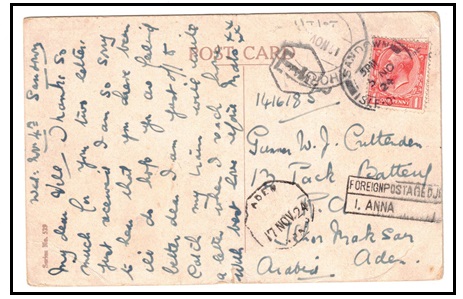 POST CARD
Wed. Nov. 4th Sandown
My dear Thanks so
much for you two letters
just received I am so sorry
to hear that you have been
ill do hope you are feeling
better dear. I am just off to
catch my train will write
a letter when I reach
with best love
Series No. 539
SANDOWN
5 PM
NO
24
ISLE
ONE PENNY
1416185
Gunner W. J. Cruttenden
13 Pack Battery
R.
Mak Sar
Aden.
Arabia
ADEN
17 NOV. 24
FOREIGN POSTAGE DUE
1. ANNA